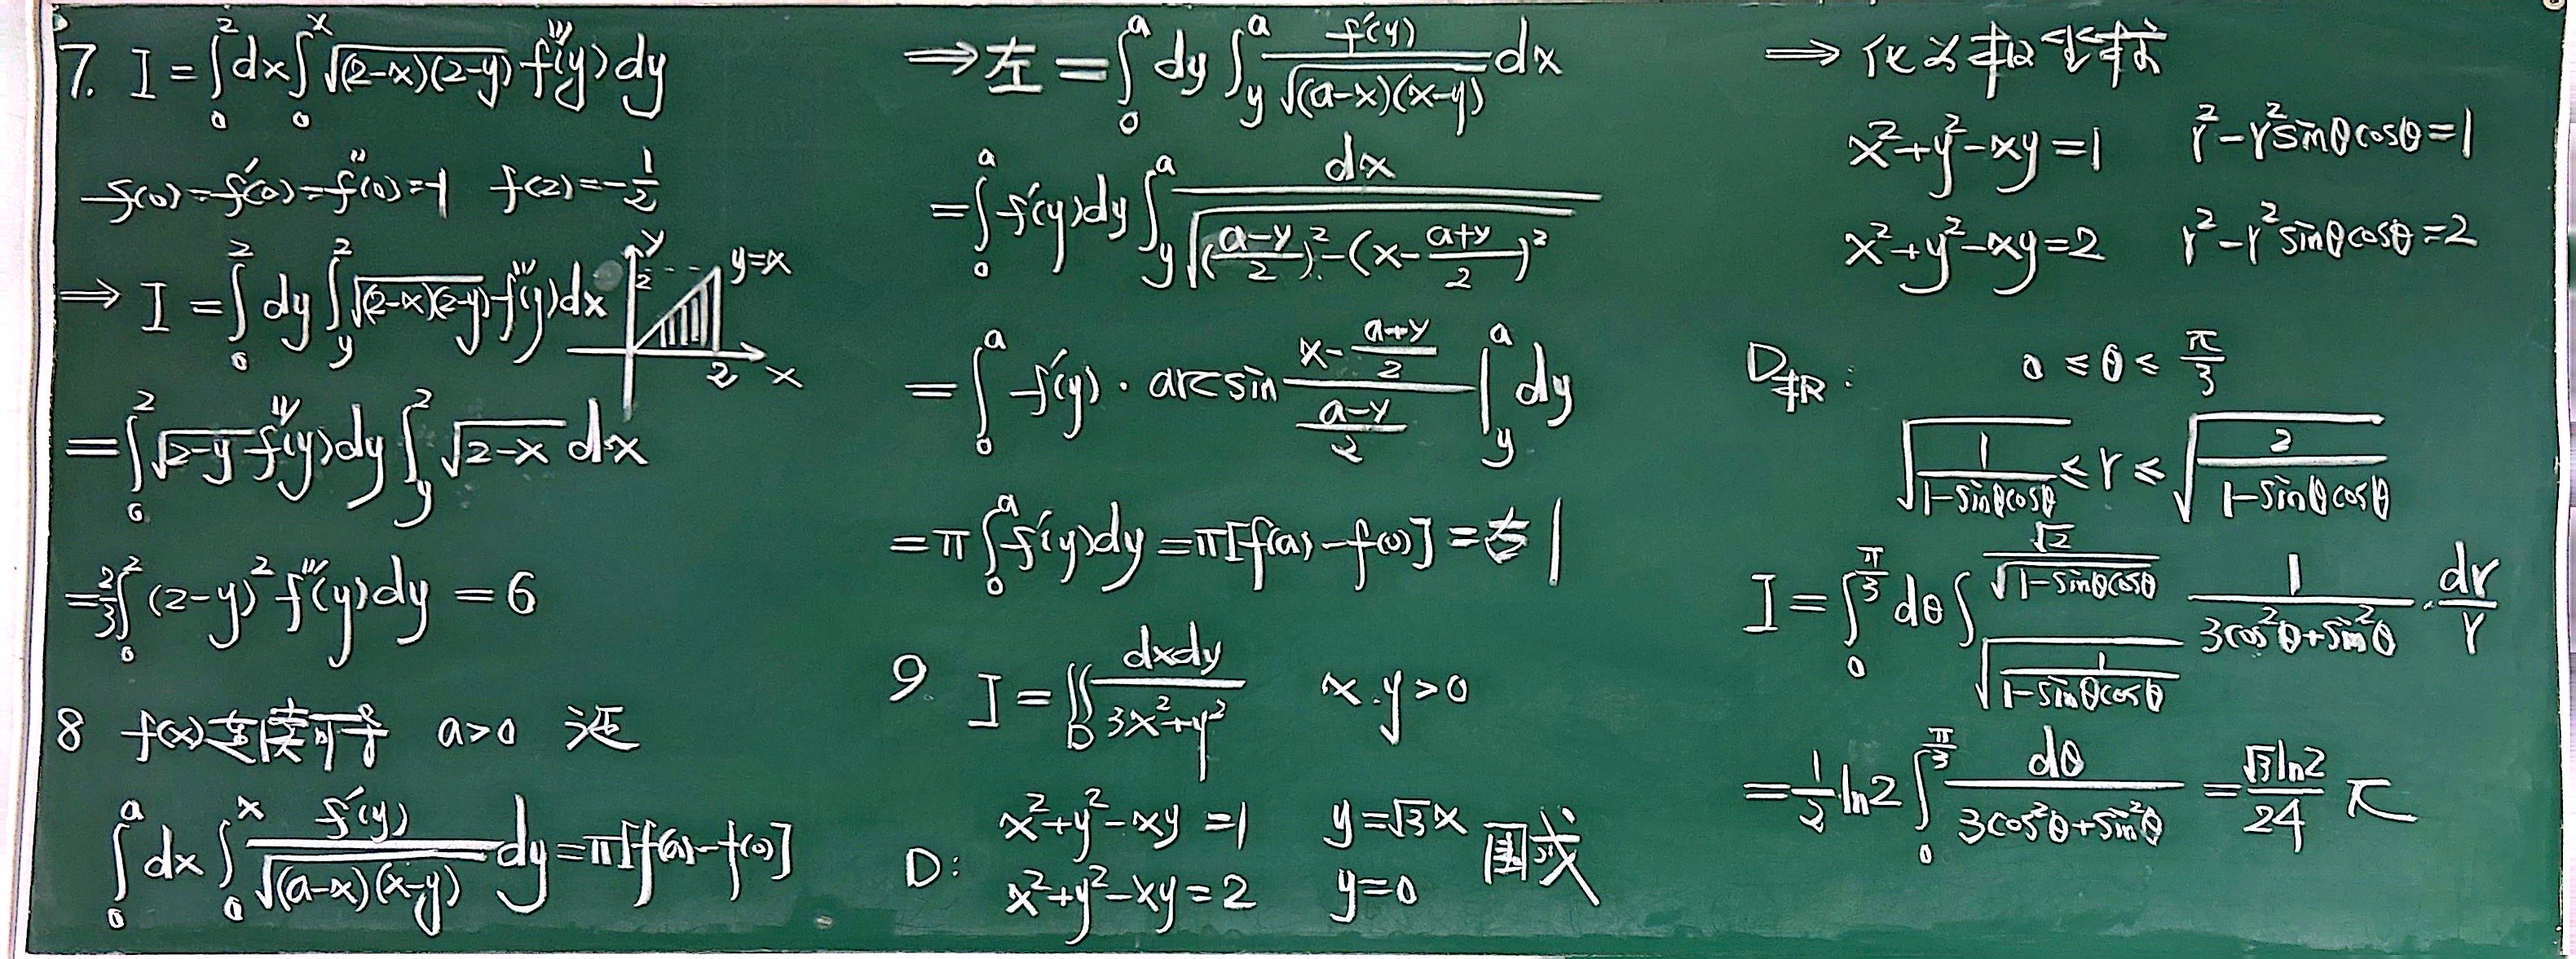 7. I = ∫₀² dx ∫₀ˣ √((2-x)(2-y)) f'''(y) dy
f(0) = f'(0) = f''(0) = -1 f(2) = -1/2
⇒ I = ∫₀² dy ∫_y² √((2-x)(2-y)) f'''(y) dx
y
2
y=x
2
x
= ∫₀² √(2-y) f'''(y) dy ∫_y² √(2-x) dx
= 2/3 ∫₀² (2-y)² f'''(y) dy = 6
8 f(x)连续可导 a>0 证
∫₀ᵃ dx ∫₀ˣ f'(y)/√((a-x)(x-y)) dy = π[f(a)-f(0)]
⇒ 左 = ∫₀ᵃ dy ∫_yᵃ f'(y)/√((a-x)(x-y)) dx
= ∫₀ᵃ f'(y) dy ∫_yᵃ dx/√(((a-y)/2)² - (x - (a+y)/2)²)
= ∫₀ᵃ f'(y) · arcsin (x - (a+y)/2)/((a-y)/2) |_yᵃ dy
= π ∫₀ᵃ f'(y) dy = π[f(a) - f(0)] = 右 |
9. I = ∬_D dxdy/(3x²+y²) x.y>0
D: x²+y²-xy = 1 y=√3x 围成
x²+y²-xy = 2 y=0
⇒ 化为极坐标
x²+y²-xy = 1 r² - r²sinθcosθ = 1
x²+y²-xy = 2 r² - r²sinθcosθ = 2
D极: 0 ≤ θ ≤ π/3
√(1/(1-sinθcosθ)) ≤ r ≤ √(2/(1-sinθcosθ))
I = ∫₀^(π/3) dθ ∫_(√(1/(1-sinθcosθ)))^(√2/√(1-sinθcosθ)) 1/(3cos²θ+sin²θ) · dr/r
= 1/2 ln2 ∫₀^(π/3) dθ/(3cos²θ+sin²θ) = √3ln2/24 π